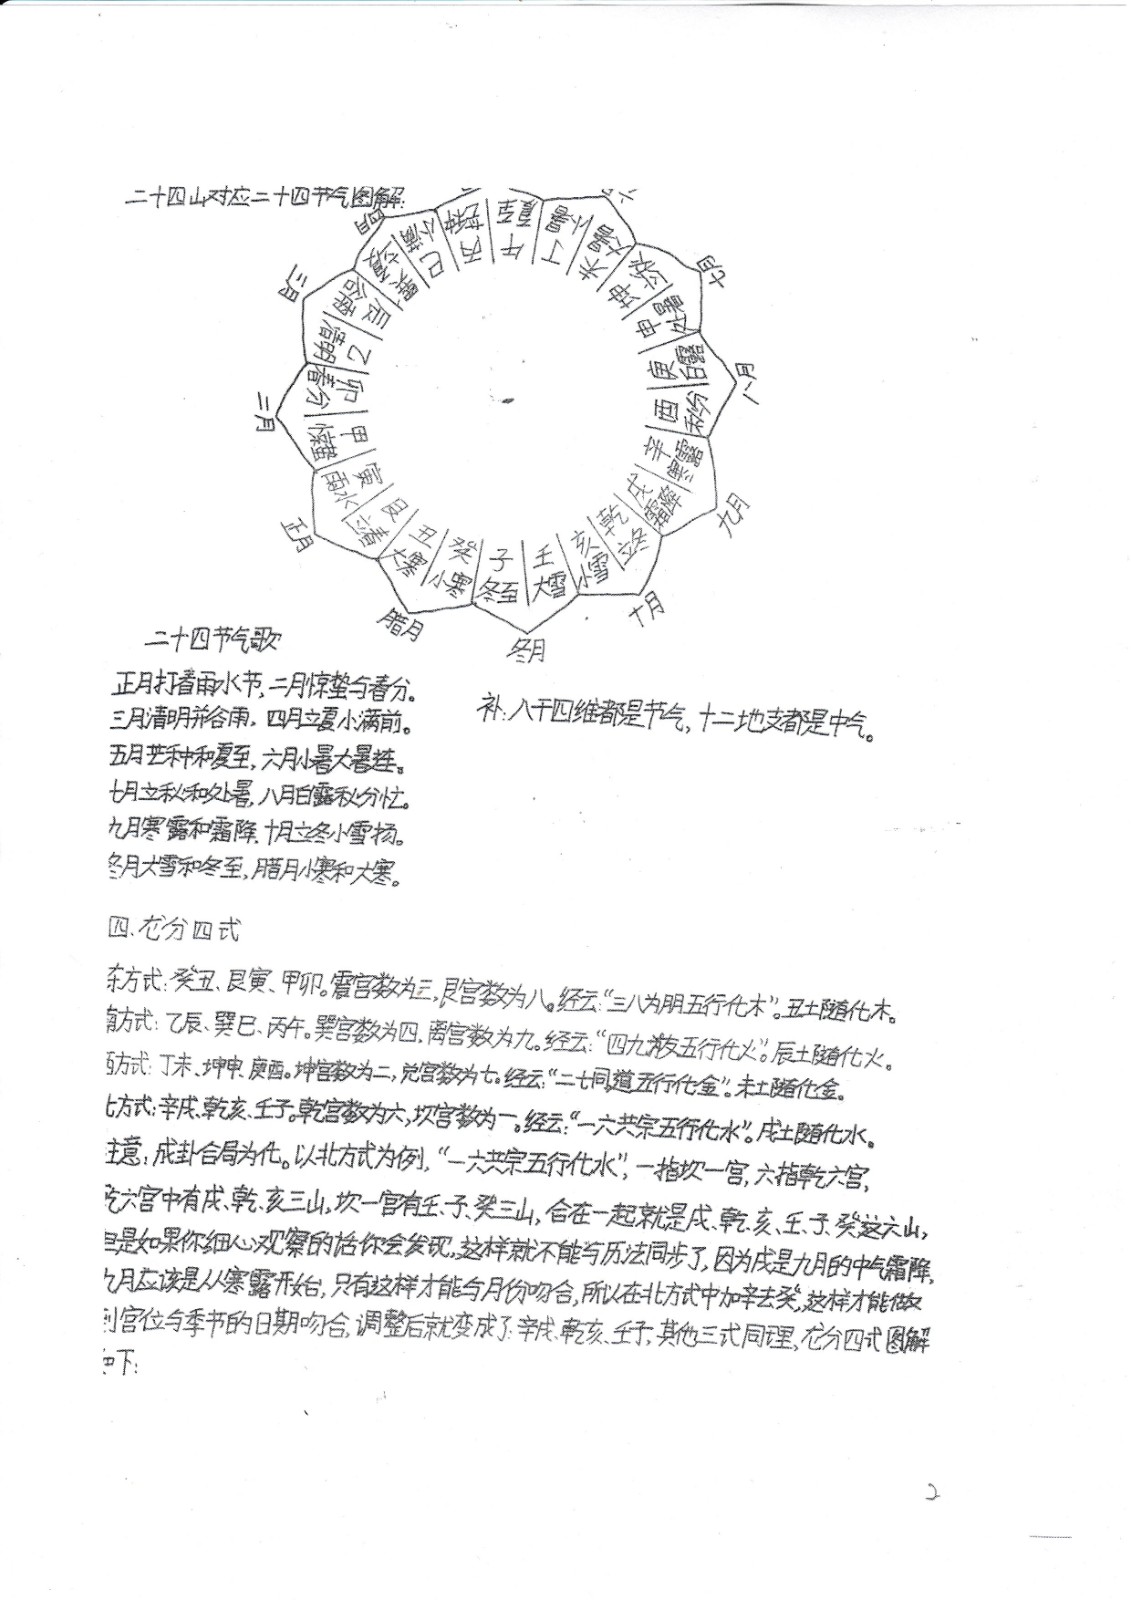 二十四山对应二十四节气图解:
四月
三月
二月
正月
腊月
冬月
十月
九月
八月
七月
六
巳 小满
丙 芒种
午 夏至
丁 小暑
未 大暑
坤 立秋
申 处暑
庚 白露
酉 秋分
辛 寒露
戌 霜降
乾 立冬
亥 小雪
壬 大雪
子 冬至
癸 小寒
丑 大寒
艮 立春
寅 雨水
甲 惊蛰
卯 春分
乙 清明
辰 谷雨
巽 立夏
二十四节气歌
正月打春雨水节,二月惊蛰与春分。
三月清明并谷雨,四月立夏小满前。
五月芒种和夏至,六月小暑大暑连。
七月立秋和处暑,八月白露秋分忙。
九月寒露和霜降.十月立冬小雪扬。
冬月大雪和冬至,腊月小寒和大寒。
补:八干四维都是节气,十二地支都是中气。
四.龙分四式
东方式:癸丑、艮寅、甲卯。震宫数为三,艮宫数为八。经云:“三八为朋五行化木”。丑土随化木。
南方式:乙辰、巽巳、丙午。巽宫数为四,离宫数为九。经云:“四九为友五行化火”。辰土随化火。
西方式:丁未、坤申、庚酉。坤宫数为二,兑宫数为七。经云:“二七同道五行化金”。未土随化金。
北方式:辛戌、乾亥、壬子。乾宫数为六,坎宫数为一。经云:“一六共宗五行化水”。戌土随化水。
注意:成卦合局为化。以北方式为例,“一六共宗五行化水”,一指坎一宫,六指乾六宫,
乾六宫中有戌、乾、亥三山,坎一宫有壬、子、癸三山,合在一起就是戌、乾、亥、壬、子、癸这六山,
但是如果你细心观察的话你会发现,这样就不能与历法同步了,因为戌是九月的中气霜降,
九月应该是从寒露开始,只有这样才能与月份吻合,所以在北方式中加辛去癸,这样才能做
到宫位与季节的日期吻合,调整后就变成了:辛戌、乾亥、壬子,其他三式同理,龙分四式图解
如下:
2